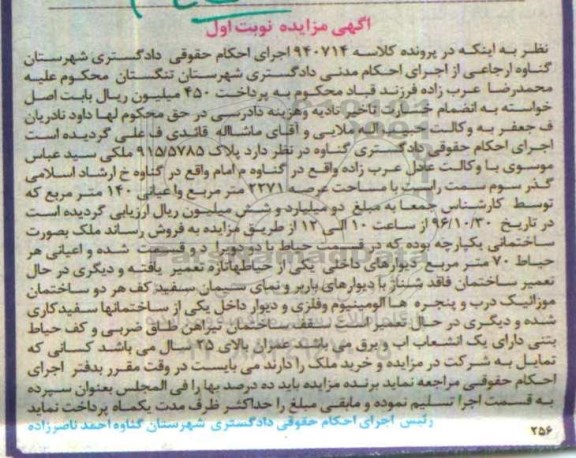 آگهی مزایده نوبت اول
نظر به اینکه در پرونده کلاسه ۹۴۰۷۱۴ اجرای احکام حقوقی دادگستری شهرستان
گناوه ارجاعی از اجرای احکام مدنی دادگستری شهرستان تنگستان محکوم علیه
محمدرضا عرب زاده فرزند قباد محکوم به پرداخت ۴۵۰ میلیون ریال بابت اصل
خواسته به انضمام خسارت تاخیر تادیه وهزینه دادرسی در حق محکوم لها داود نادریان
ف جعفر به وکالت حبیب اله ملایی و آقای ماشااله قائدی فاعلی گردیده است
اجرای احکام حقوقی دادگستری گناوه در نظر دارد پلاک ۹۱۵/۵۷۸۵ ملکی سید عباس
موسوی با وکالت عادل عرب زاده واقع در گناوه م امام واقع در گناوه خ ارشاد اسلامی
گذر سوم سمت راست با مساحت عرصه ۲۲۷۱ متر مربع واعیانی ۱۴۰ متر مربع که
توسط کارشناس جمعا به مبلغ دو میلیارد و شش میلیون ریال ارزیابی گردیده است
در تاریخ ۹۶/۱۰/۳۰ از ساعت ۱۰ الی ۱۲ از طریق مزایده به فروش رساند ملک بصورت
ساختمانی یکپارچه بوده که در قسمت حیاط با دودوبرا دو قسمت شده و اعیانی هر
حیاط ۷۰ متر مربع دیوارهای داخلی یکی از حیاطهاتازه تعمیر یافته و دیگری در حال
تعمیر ساختمان فاقد شناژ با دیوارهای باربر و نمای سیمان سفید کف هر دو ساختمان
موزائیک درب و پنجره هاآلومینیوم وفلزی و دیوار داخل یکی از ساختمانها سفیدکاری
شده و دیگری در حال تعمیر است سقف ساختمان تیرآهن طاق ضربی و کف حیاط
بتنی دارای یک انشعاب اب و برق می باشد عمران بالای ۲۵ سال می باشد کسانی که
تمایل به شرکت در مزایده و خرید ملک را دارند می بایست در وقت مقرر بدفتر اجرای
احکام حقوقی مراجعه نماید برنده مزایده باید ده درصد بها را فی المجلس بعنوان سپرده
به قسمت اجرا تسلیم نموده و مابقی مبلغ را حداکثر ظرف مدت یکماه پرداخت نماید
رئیس اجرای احکام حقوقی دادگستری شهرستان گناوه احمد ناصرزاده
۲۵۶